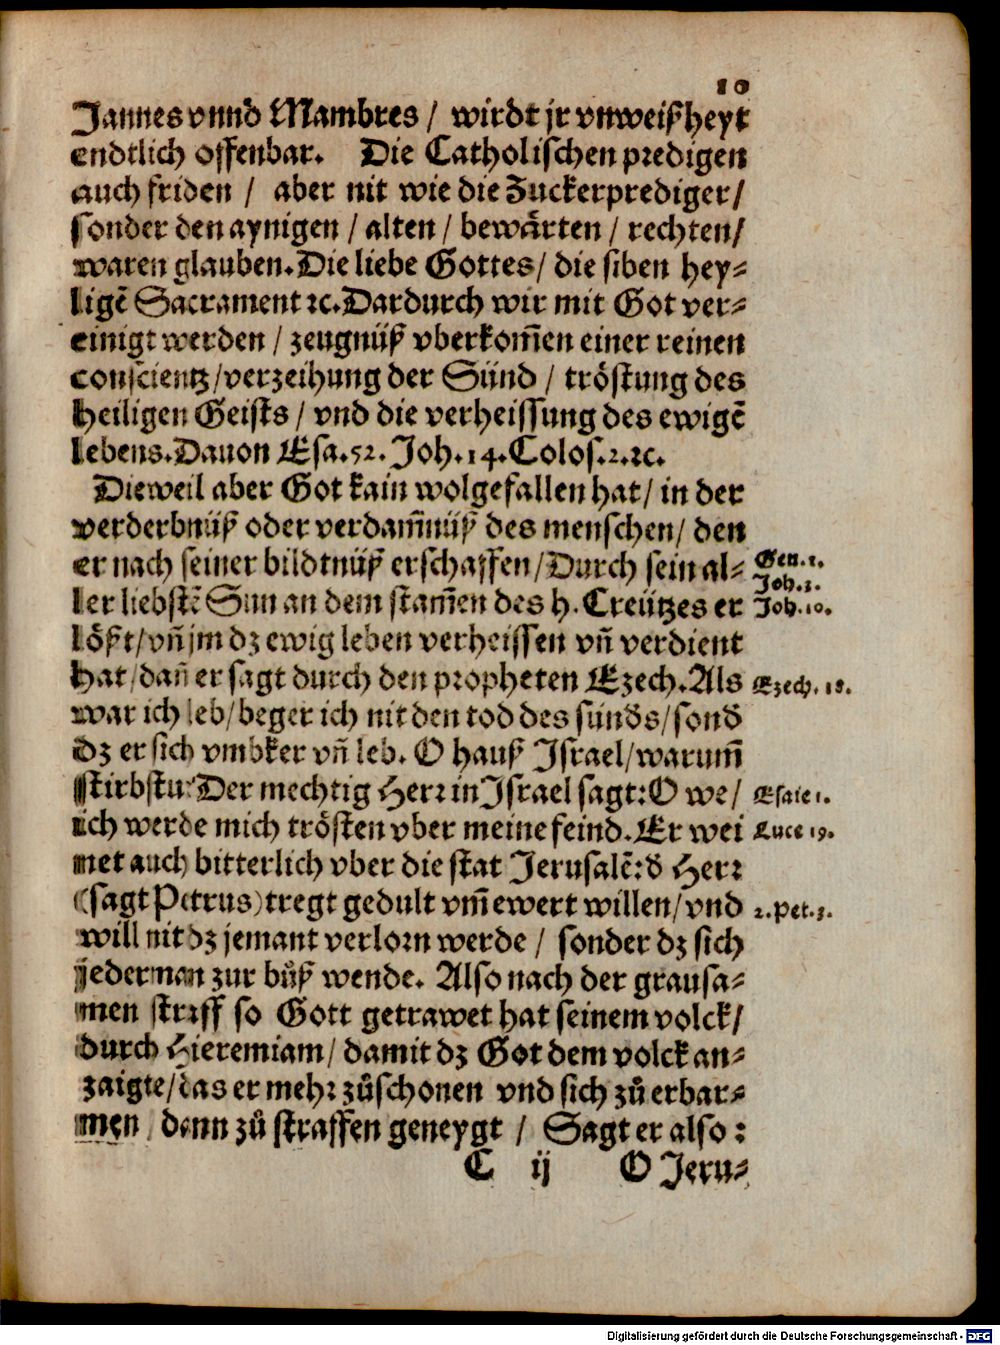 10
Jannes vnnd Mambres / wirdt jr vnweißheyt
endtlich offenbar. Die Catholischen predigen
auch friden / aber nit wie die Zuckerprediger/
sonder den aynigen / alten / bewärten / rechten/
waren glauben. Die liebe Gottes/ die siben hey⸗
ligē Sacrament ꝛc. Dardurch wir mit Got ver⸗
einigt werden / zeugnüß vberkom̄en einer reinen
conscientz/verzeihung der Sünd / tröstung des
heiligen Geists / vnd die verheissung des ewigē
lebens. Dauon Esa. 52. Joh. 14. Colos. 2. ꝛc.
Dieweil aber Got kain wolgefallen hat/ in der
verderbnüß oder verdam̄nüß des menschen/ den
er nach seiner bildtnüß erschaffen/Durch sein al⸗
Gen. 1.
Joh. 3.
ler liebstē Sun an dem stam̄en des h. Creützes er
Joh. 10.
lößt/vn̄ jm dz ewig leben verheissen vn̄ verdient
hat/dan̄ er sagt durch den propheten Ezech. Als
Ezech. 18.
war ich leb/beger ich nit den tod des sünds/sond
dz er sich vmbker vn̄ leb. O hauß Israel/warum̄
stirbstu? Der mechtig Herr in Israel sagt: O we/
Esaie 1.
ich werde mich trösten vber meine feind. Er wei
Luce 19.
net auch bitterlich vber die stat Jerusalē: d Herr
(sagt Petrus) tregt gedult vm̄ ewert willen/vnd
2. Pet. 3.
will nit dz jemant verlorn werde / sonder dz sich
jederman zur bůß wende. Also nach der grausa⸗
men straff so Gott getrawet hat seinem volck/
durch Hieremiam/ damit dz Got dem volck an⸗
zaigte/das er mehr zůschonen vnd sich zů erbar⸗
men / denn zů straffen geneygt / Sagt er also :
C ij O Jeru⸗
Digitalisierung gefördert durch die Deutsche Forschungsgemeinschaft - DFG